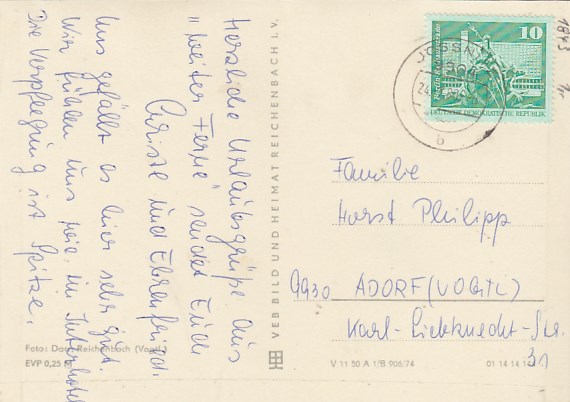 Herzliche Urlaubsgrüße aus
"weiter Ferne" sendet Euch
Christe und Ehrenfried.
Uns gefällt es hier sehr gut.
Wir fühlen uns wie im Interhotel
Die Verpflegung ist Spitze.
Foto: Darr Reichenbach (Vogtl.)
EVP 0,25 M
VEB BILD UND HEIMAT REICHENBACH I. V.
1843
10
DEUTSCHE DEMOKRATISCHE REPUBLIK
JOSSN
24.
b
Familie
Horst Philipp
9930 ADORF (VOGTL)
Karl-Liebknecht-Str.
31
V 11 50 A 1/B 906/74
01 14 14 1